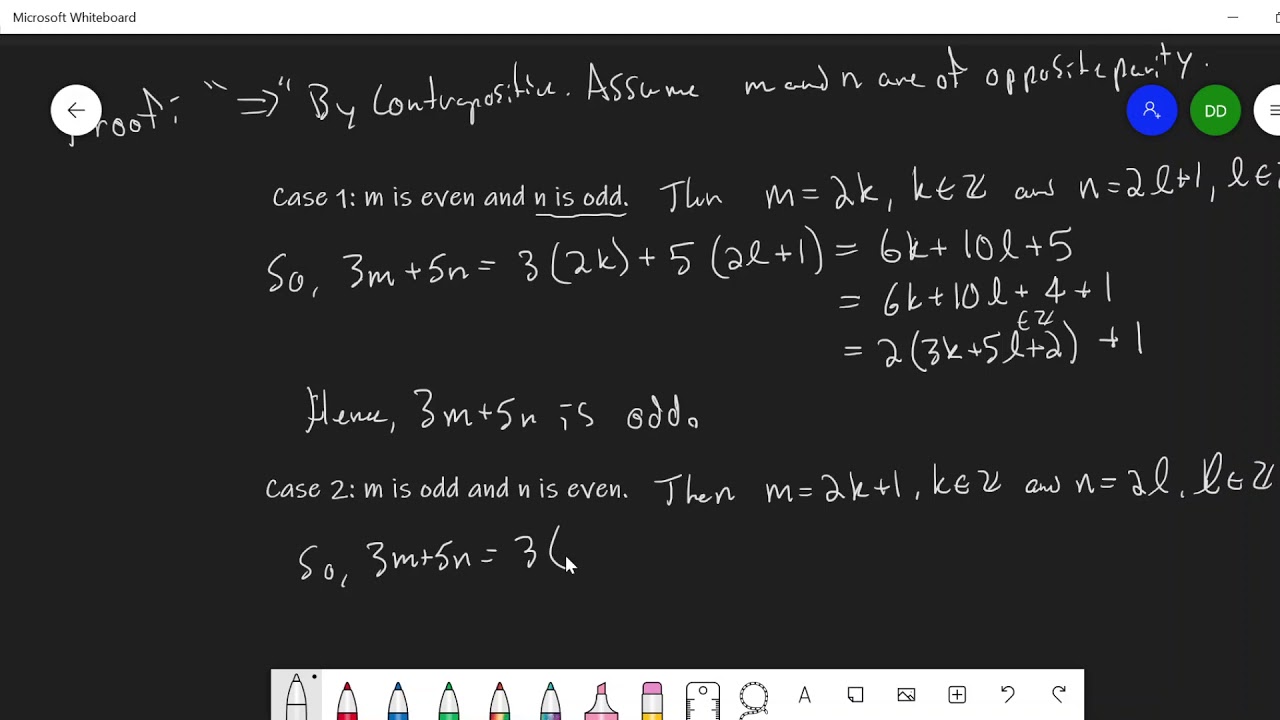 Microsoft Whiteboard
Proof: "⇒" By Contrapositive. Assume m and n are of opposite parity.
DD
Case 1: m is even and n is odd. Then m = 2k, k∈ℤ and n = 2l+1, l∈
So, 3m+5n = 3(2k) + 5(2l+1) = 6k + 10l + 5
= 6k+10l + 4 + 1
∈ℤ
= 2(3k+5l+2) + 1
Hence, 3m+5n is odd.
Case 2: m is odd and n is even. Then m = 2k+1, k∈ℤ and n = 2l, l∈ℤ
So, 3m+5n = 3(
A